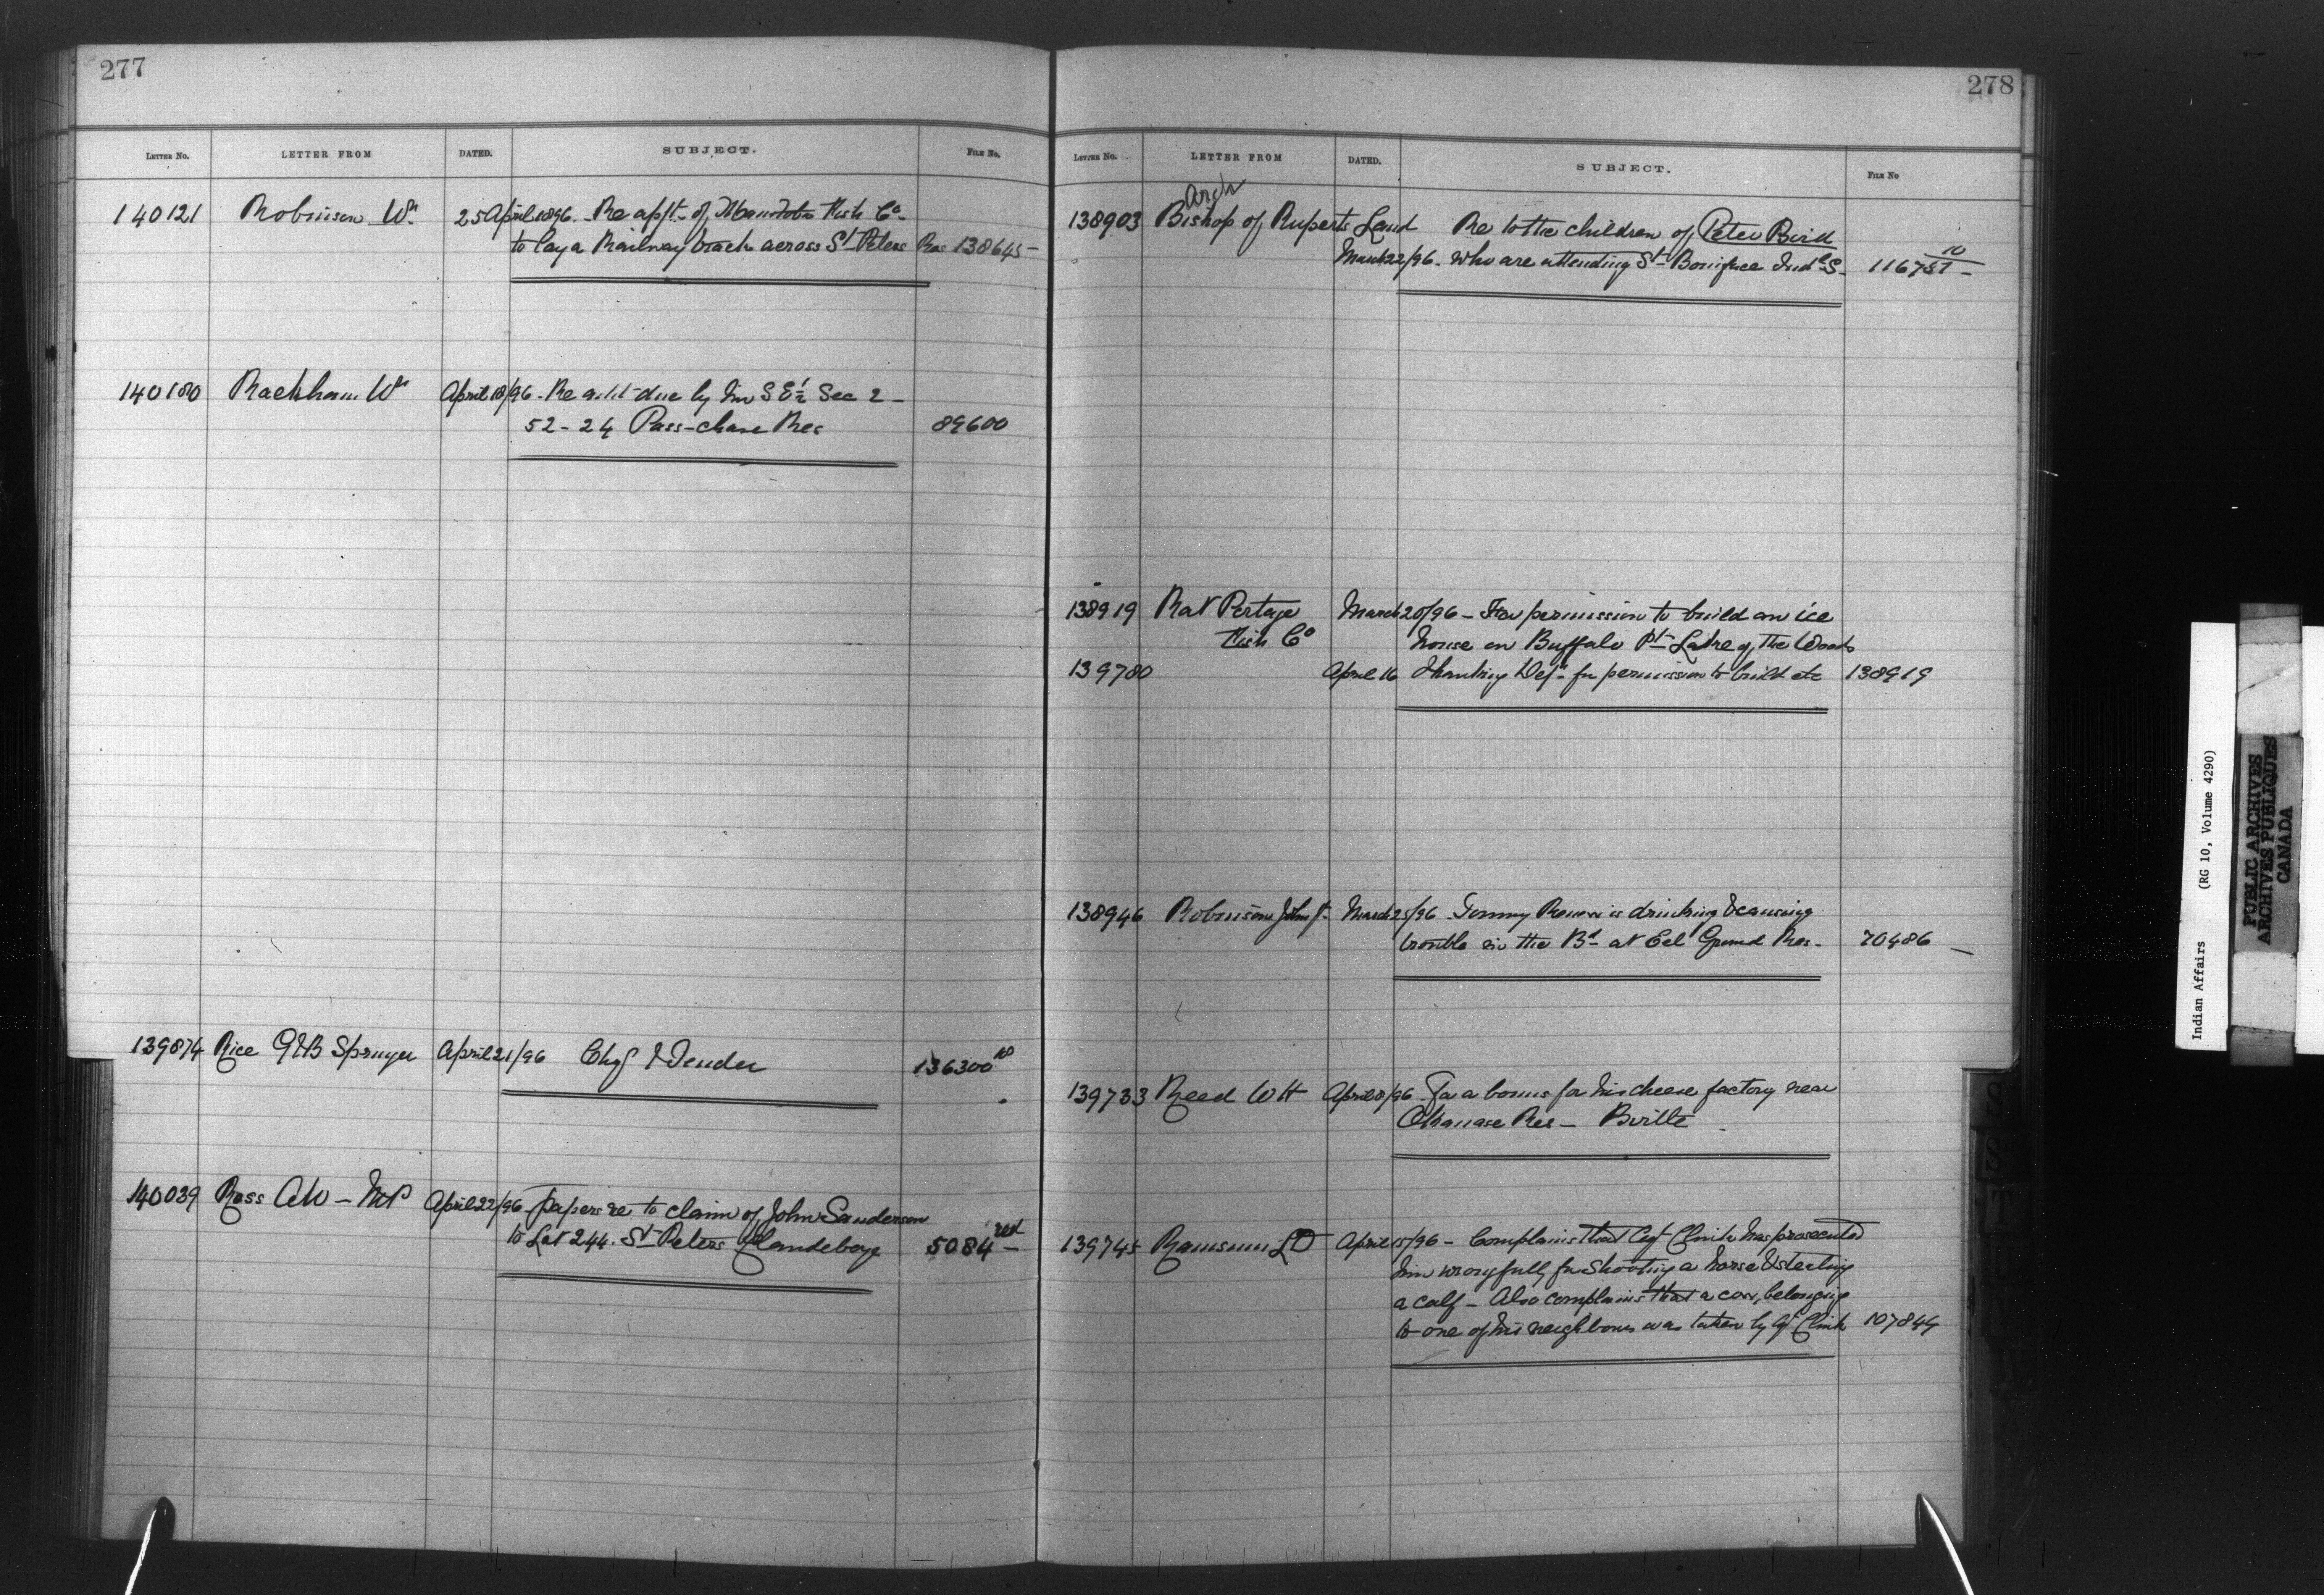 277
LETTER NO. LETTER FROM DATED. SUBJECT. FILE NO.
140121 Robinson Wm 25 April 1896. - Re applt. of Manitoba Fish Co.
to lay a Railway track across St Peters Res 138645 -
140180 Rackham Wm April 18/96 - Re amt due by him S E ½ Sec 2 -
52 - 24 Pass-chase Res 89600
139874 Rice G & B Sprayer April 21/96 Chqs & Tender 136300 10
140039 Ross AW - MP April 22/96 - papers re to claim of John Sanderson
to Lot 244. St Peters Clandeboye 5084 red
278
LETTER NO. LETTER FROM DATED. SUBJECT. FILE NO
138903 Arch Bishop of Ruperts Land Re to the children of Peter Bird
March 22/96. who are attending St Boniface Indl S -
138919 Rat Portage March 20/96 - For permission to build an ice
Fish Co house on Buffalo Pt - Lake of the Woods
139780 April 16 Thanking Dept for permission to build etc 138919
138946 Robinson John Jr. March 25/96 - Tommy is drinking & causing
trouble in the Bd at Eel Ground Res - 70486 -
139733 Reed W H April 8/96 - For a bonus for his cheese factory near
Okanase Res - Bville
139745 L D April 15/96 - Complains that Agt Clink has prosecuted
him wrongfully for shooting a horse & stealing
a calf - Also complains that a cow, belonging
to one of his neighbours was taken by Agt Clink 107844
Indian Affairs (RG 10, Volume 4290)
PUBLIC ARCHIVES
ARCHIVES PUBLIQUES
CANADA